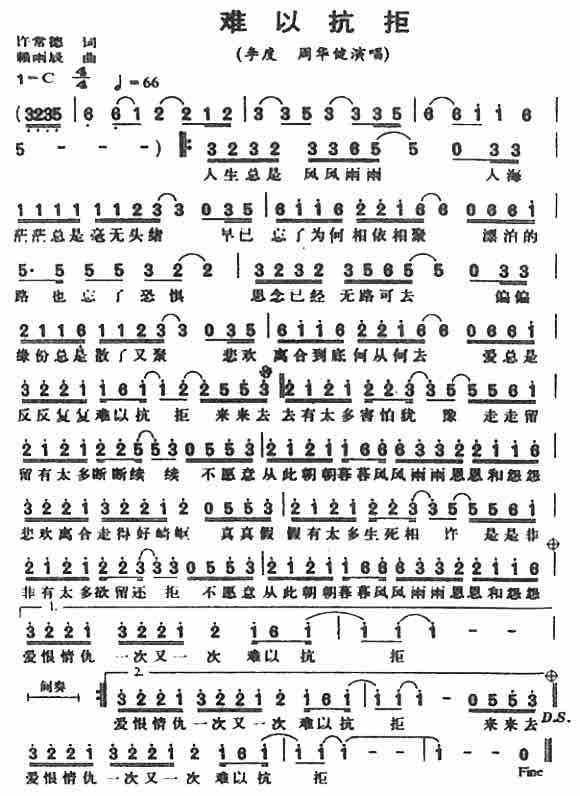 难以抗拒
许常德 词
(李度 周华健演唱)
赖雨晨 曲
1=C 4/4 ♩=66
(3235 6 61 2 212 3 35 3 335 6 611 6
5 - - - ) 3232 3365 5 0 33
人生总是 风风雨雨 人海
1111 1123 3 035 6116 2216 6 0661
茫茫总是毫无头绪 早已 忘了为何相依相聚 漂泊的
5· 5 5 5 3 2 2 3232 3565 5 0 33
路也忘了恐惧 思念已经 无路可去 偏偏
2116 1123 3 035 6116 2216 6 0661
缘份总是散了又聚 悲欢 离合到底何从何去 爱总是
3221 161 12 2 0553 2121 1223 35 5 0553
反反复复难以抗 拒 来来去 去有太多害怕犹 豫 走走留
2121 2255 3 0553 2121 2266 6332 2166
留有太多断断续 续 不愿意从此朝朝暮暮风风雨雨恩恩和怨怨
3221 3221 2 0553 2121 1223 35 5 0553
悲欢离合走得好崎岖 真真假 假有太多生死相 许 是是非
2121 2253 3 0553 2121 2266 6332 2166
非有太多欲留还 拒 不愿意从此朝朝暮暮风风雨雨恩恩和怨怨
1.
3221 3221 2 161 1 1 1 1 - - -
爱恨情仇 一次又一次 难以抗 拒
间奏 2.
3221 3221 2 161 1 1 1 1 - 0553
爱恨情仇 一次又一次 难以抗 拒 来来去 D.S.
3221 3221 2 161 1 1 1 1 - - 0
爱恨情仇 一次又一次 难以抗 拒 Fine